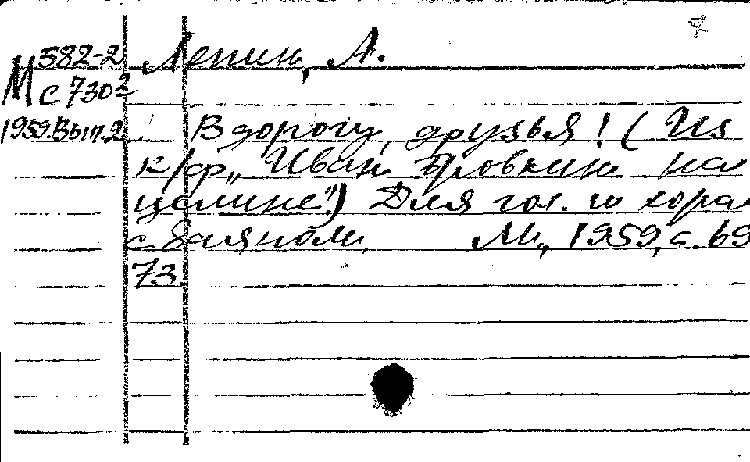 М 582-2 Лепин, А.
с 730²
1959.Вып.2 В дорогу, друзья! (Из
к/ф „Иван Бровкин на
целине".) Для гол. и хора
с баяном. М., 1959, с. 69
73.